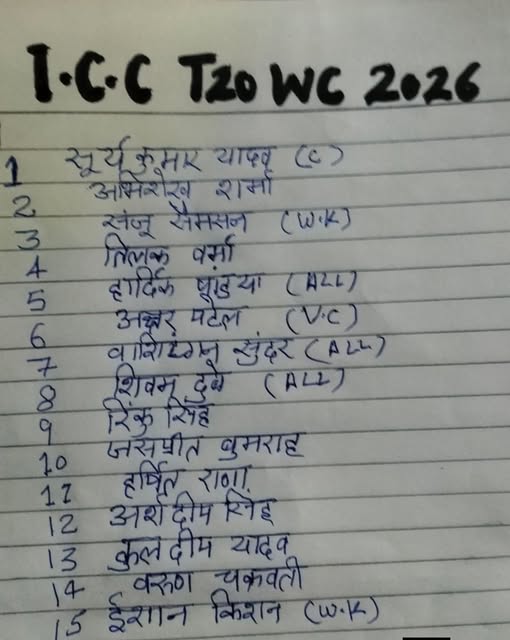 I.C.C T20 WC 2026
1 सूर्य कुमार यादव (C)
2 अभिशेख शर्मा
3 संजू सैमसन (W.K)
4 तिलक वर्मा
5 हार्दिक पंड्या (ALL)
6 अक्षर पटेल (V.C)
7 वाशिंगटन सुंदर (ALL)
8 शिवम दुबे (ALL)
9 रिंकु सिंह
10 जसप्रीत बुमराह
11 हर्षित राणा
12 अर्शदीप सिंह
13 कुलदीप यादव
14 वरुण चक्रवर्ती
15 ईशान किशन (W.K)